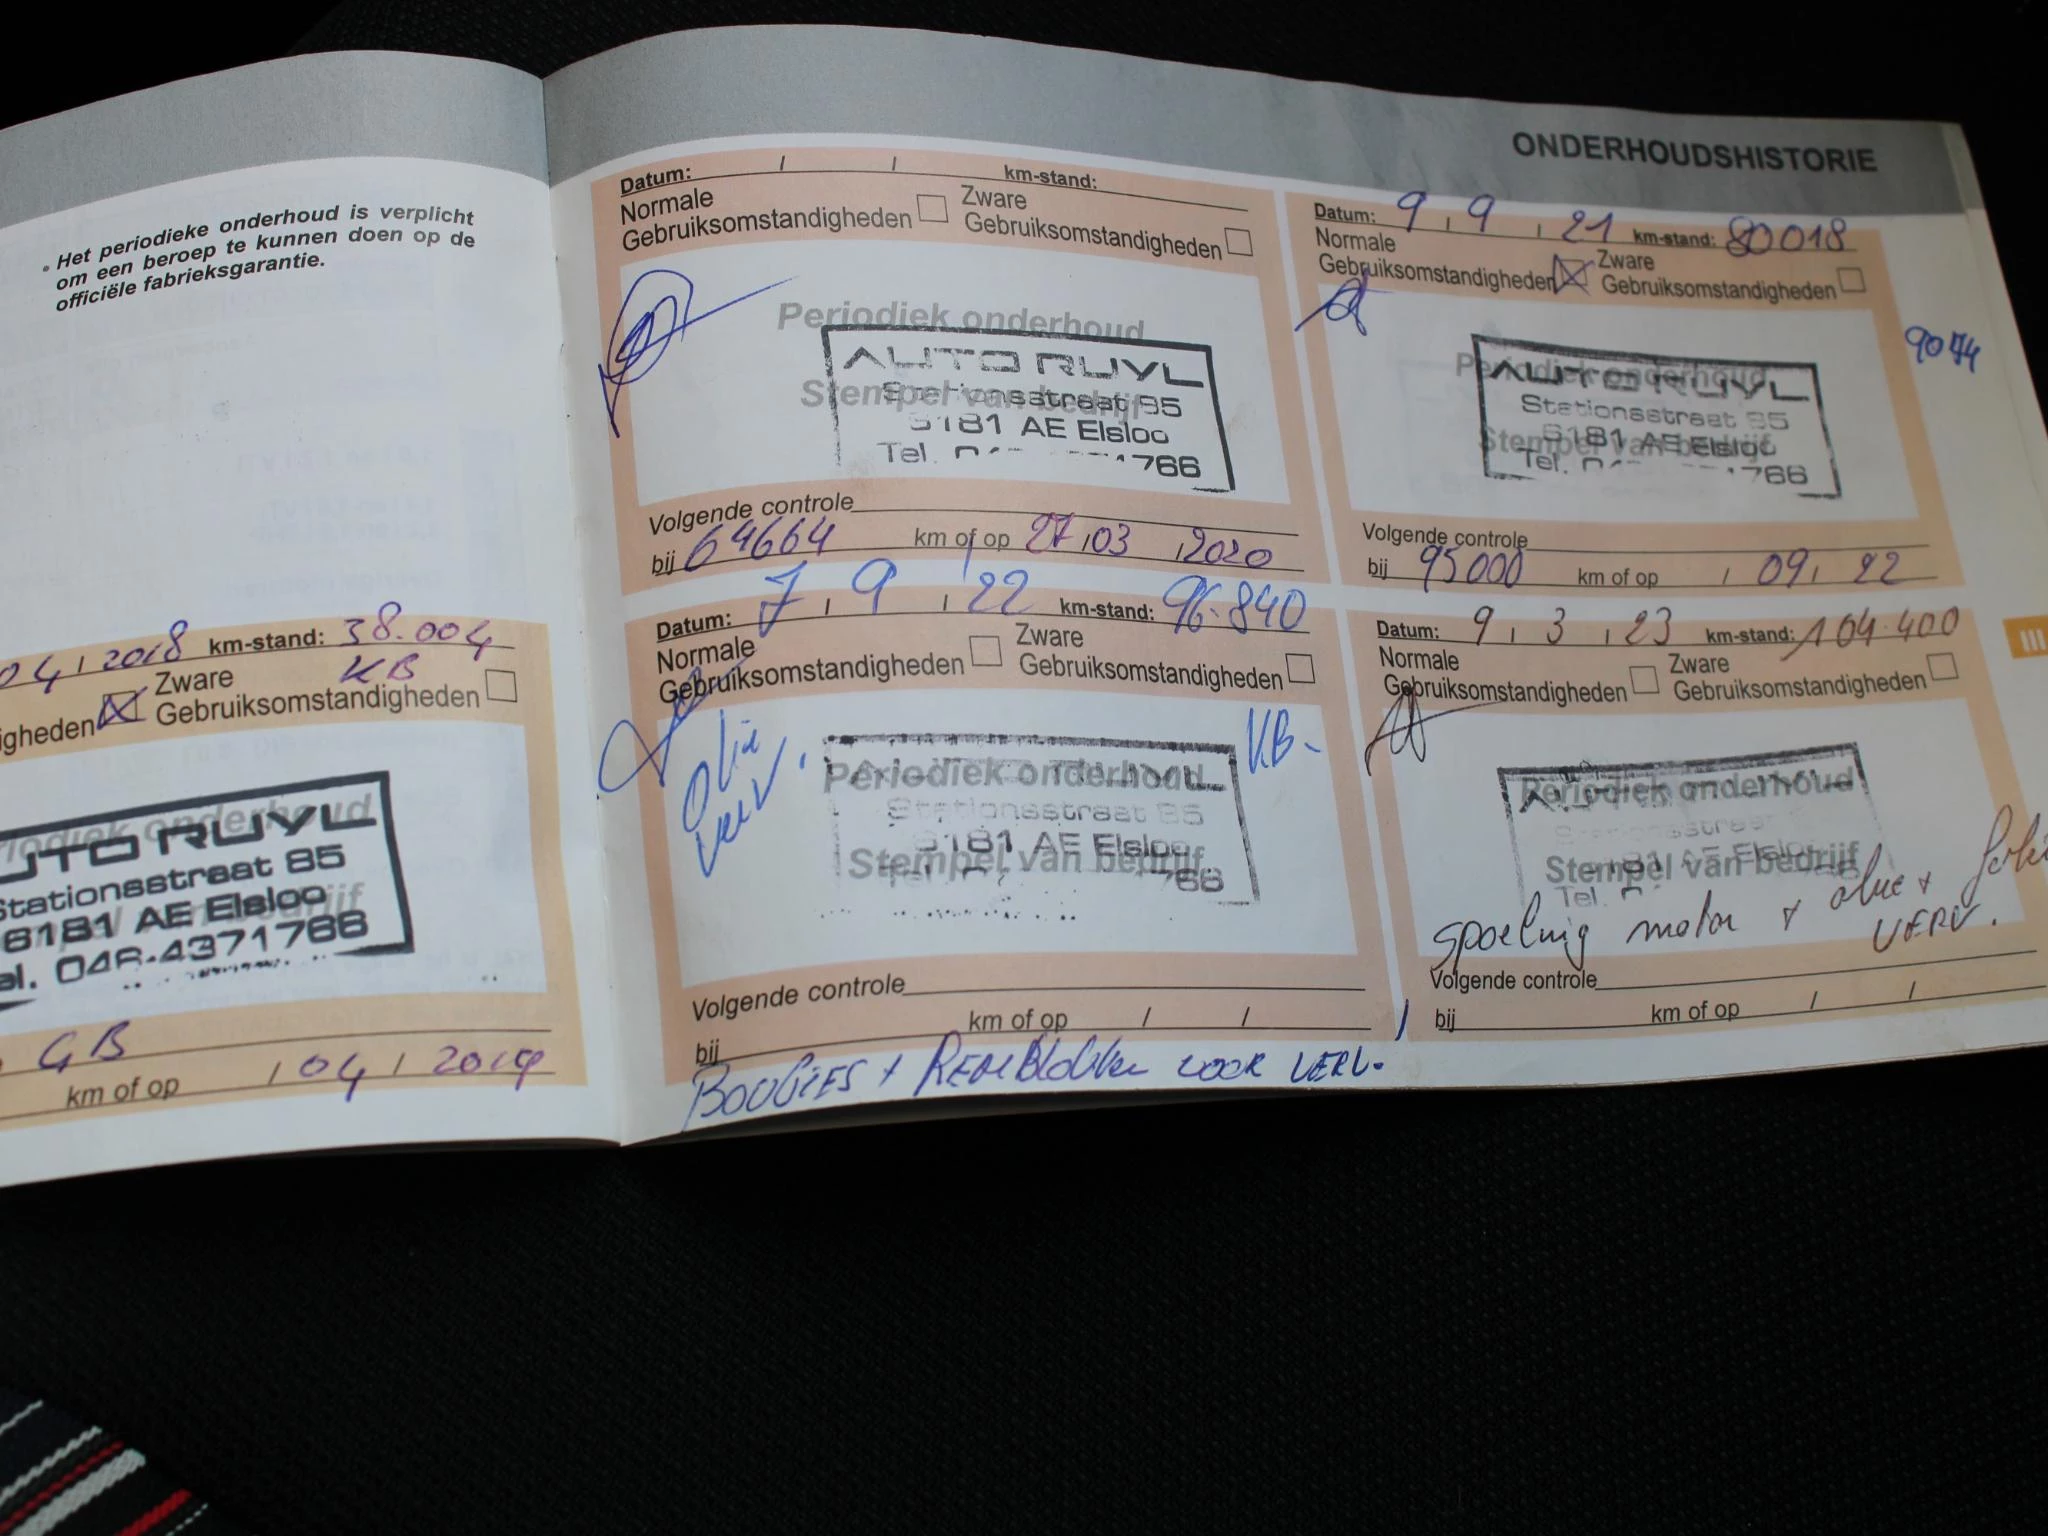 • Het periodieke onderhoud is verplicht
om een beroep te kunnen doen op de
officiële fabrieksgarantie.
04 / 2018 km-stand: 38.004
Zware KB
igheden Gebruiksomstandigheden
Periodiek onderhoud
AUTO RUYL
Stationsstraat 85
6181 AE Elsloo
Tel. 046-4371766
GB
km of op / 04 / 2019
ONDERHOUDSHISTORIE
Datum: / / km-stand:
Normale Zware
Gebruiksomstandigheden Gebruiksomstandigheden
Periodiek onderhoud
AUTO RUYL
Stempel van bedrijf
Stationsstraat 85
6181 AE Elsloo
Tel. 766
Volgende controle
bij 64664 km of op 27 / 03 / 2020
Datum: 9 / 9 / 21 km-stand: 80018
Normale Zware
Gebruiksomstandigheden Gebruiksomstandigheden
9074
Periodiek onderhoud
AUTO RUYL
Stationsstraat 85
Stempel van bedrijf
6181 AE Elsloo
Tel. 766
Volgende controle
bij 95000 km of op / 09 / 22
Datum: 7 / 9 / 22 km-stand: 96.840
Normale Zware
Gebruiksomstandigheden Gebruiksomstandigheden
Olie
verv.
KB-
Periodiek onderhoud
Stationsstraat 85
6181 AE Elsloo
Stempel van bedrijf
Tel. 766
Volgende controle
bij km of op / /
BOUGIES + REMBLOKKEN VOOR VERV.
Datum: 9 / 3 / 23 km-stand: 104.400
Normale Zware
Gebruiksomstandigheden Gebruiksomstandigheden
III
Periodiek onderhoud
Stempel van bedrijf
Tel.
Spoeling motor + olie +
VERV.
Volgende controle
bij km of op / /